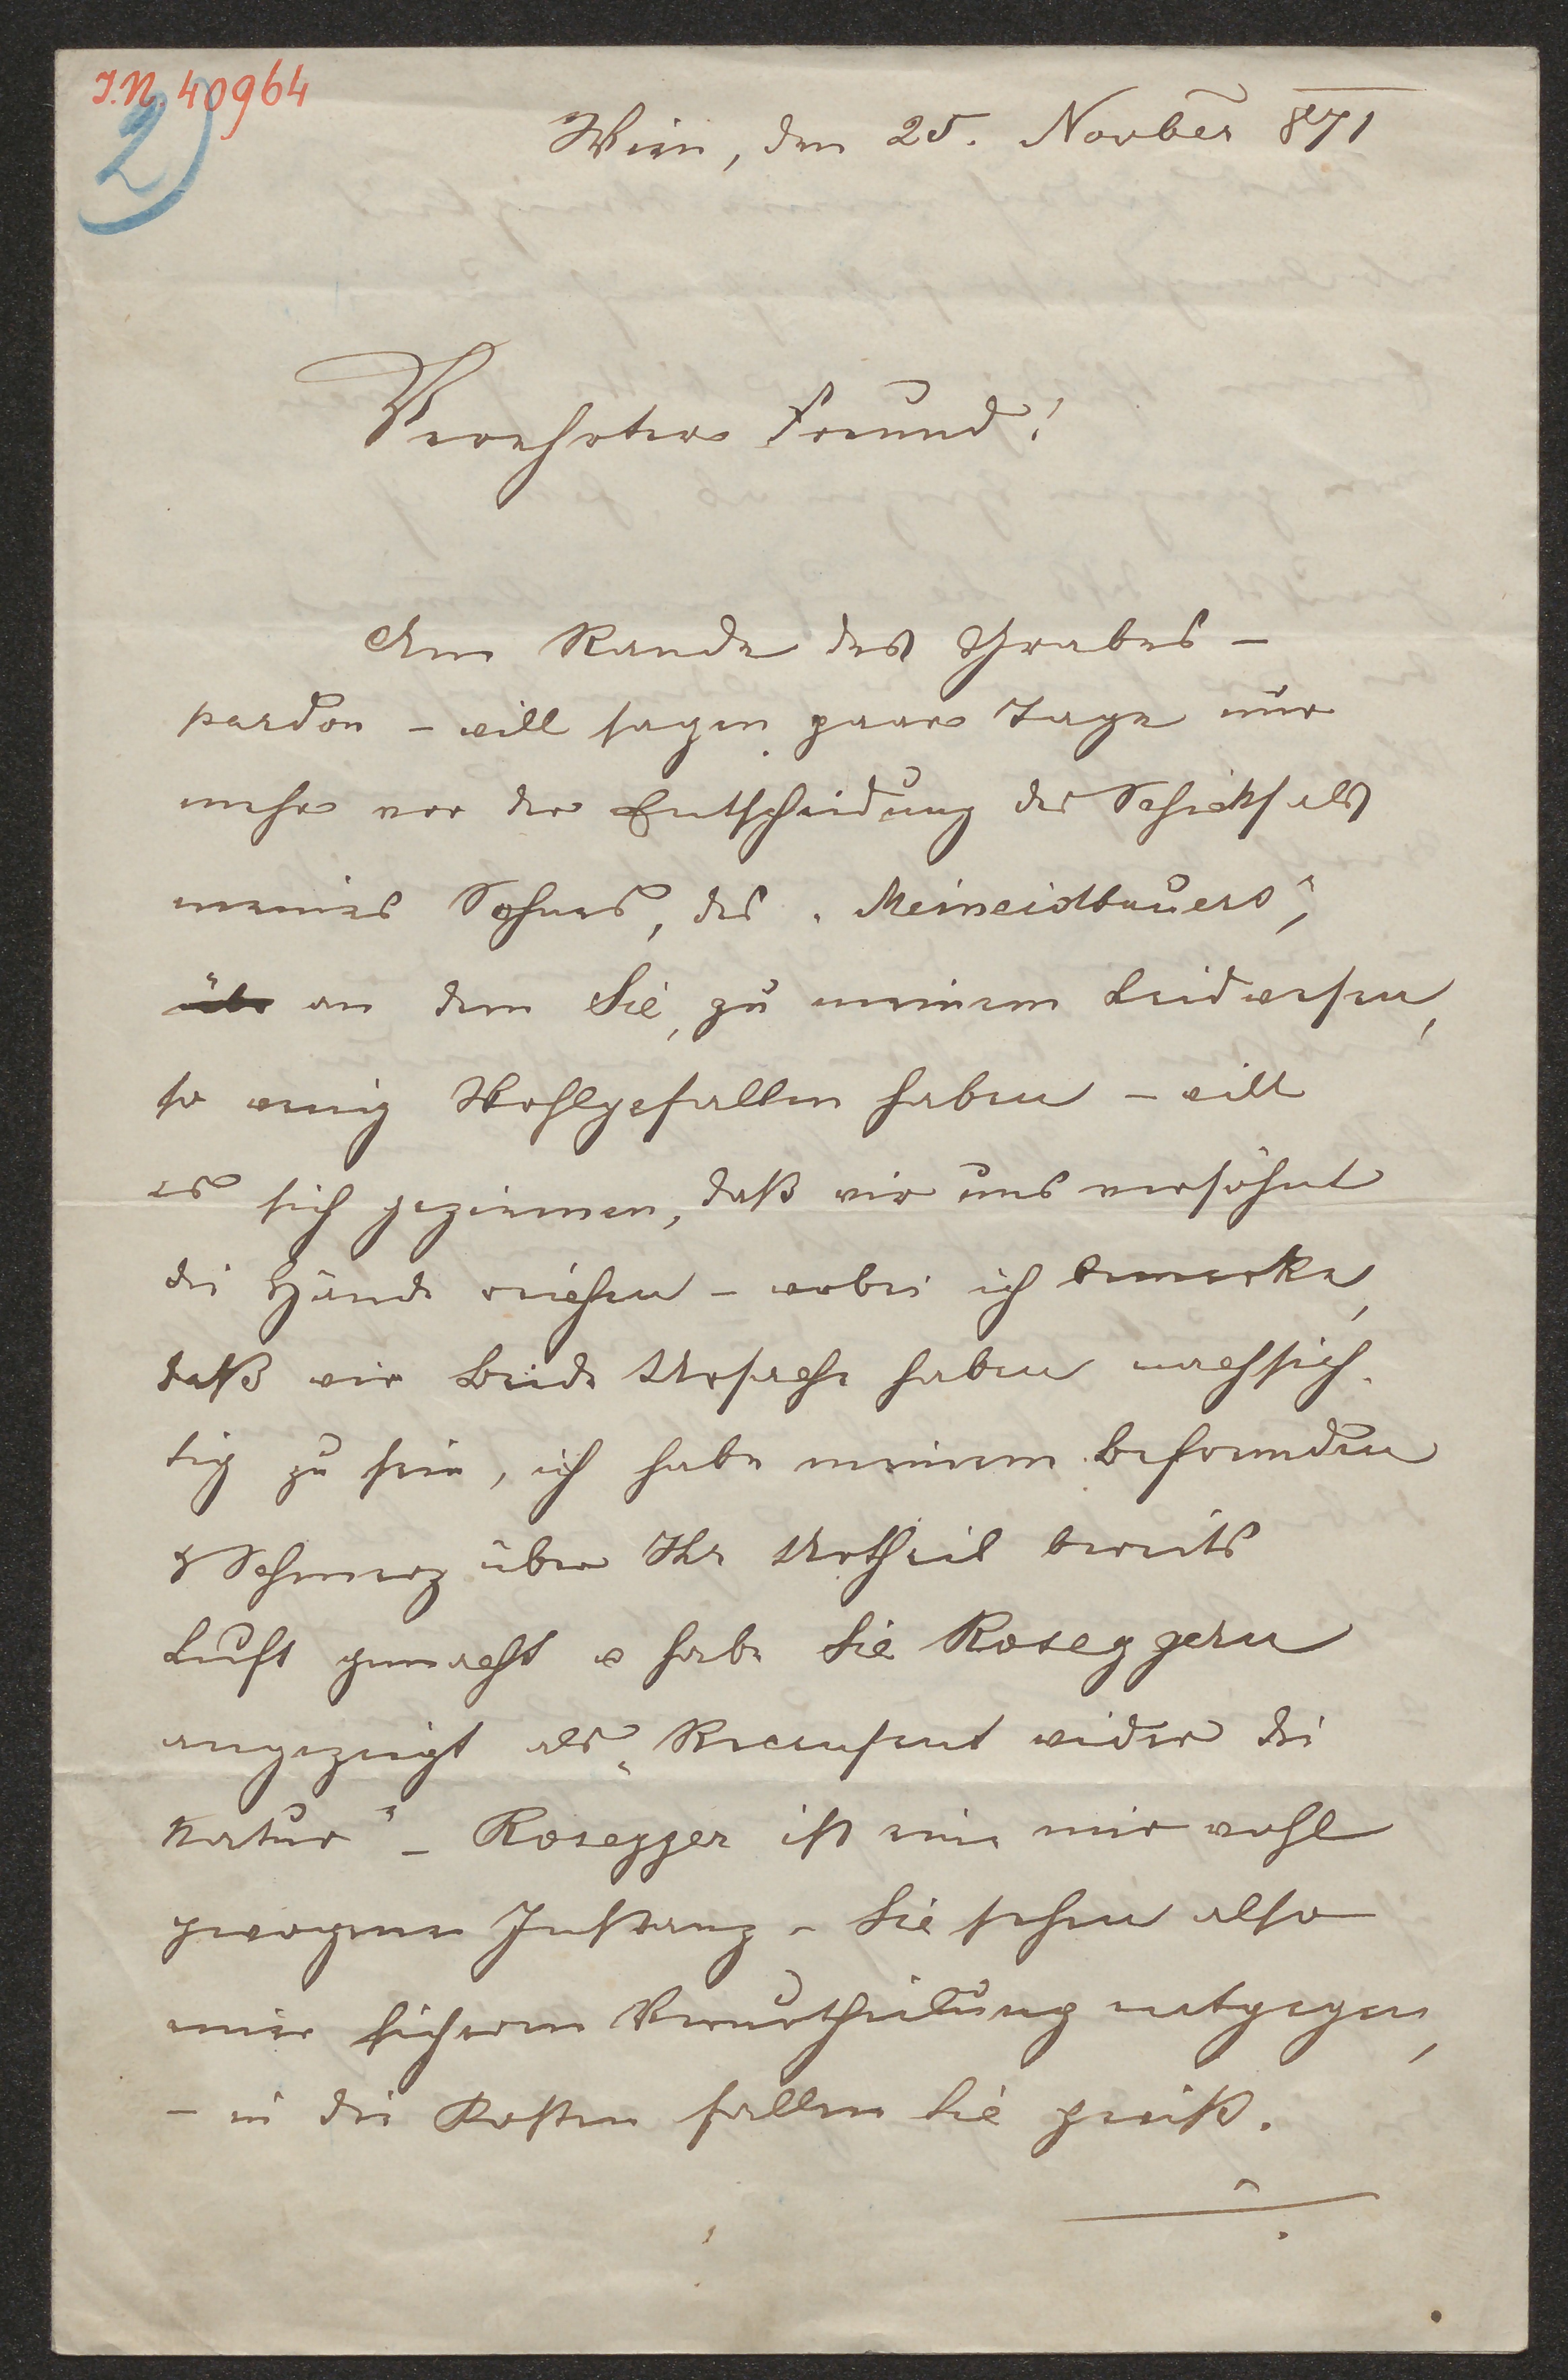 J.N. 40964
2)
Wien, den 25. Novber 871
Verehrter Freund!
Am Rande des Grabes –
pardon – will sagen paar Tage nur
mehr vor der Entscheidung des Schicksals
meines Sohnes, des „Meineidbauers",
übr an dem Sie, zu meinem Leidwesen,
so wenig Wohlgefallen haben – will
es sich geziemen, daß wir uns versöhnt
die Hände reichen – wobei ich bemerke,
daß wir beide Ursache haben nachsich-
tig zu sein, ich habe meinem Befremden
& Schmerz über Ihr Urtheil bereits
Luft gemacht & habe Sie Roseggern
angezeigt als „Recensent wider die
Natur" – Rosegger ist eine mir wohl
gewogene Instanz – Sie sehen also
einer sicheren Verurtheilung entgegen,
– in die Kosten fallen Sie gewiß.